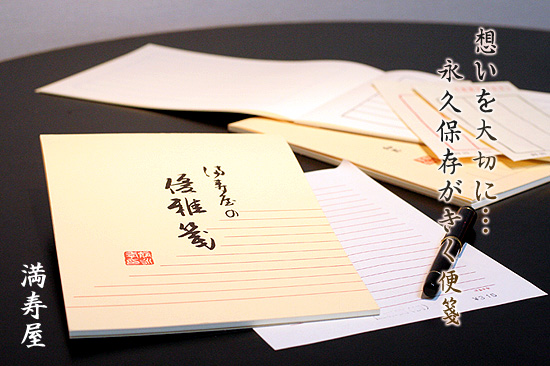 想いを大切に…
永久保存がきく便箋
満寿屋の
優雅箋
満寿屋